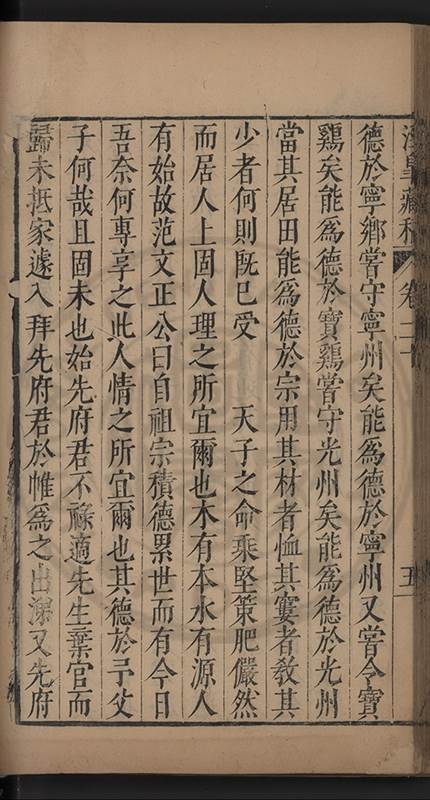 皐藏稿 卷二十 五
德於寧鄉嘗守寧州矣能爲德於寧州又嘗令寶
鷄矣能爲德於寶鷄嘗守光州矣能爲德於光州
當其居田能爲德於宗用其材者恤其窶者敎其
少者何則旣已受 天子之命乘堅策肥儼然
而居人上固人理之所宜爾也木有本水有源人
有始故范文正公曰自祖宗積德累世而有今日
吾奈何專享之此人情之所宜爾也其德於予父
子何哉且固未也始先府君不祿適先生棄官而
歸未抵家遽入拜先府君於帷爲之出涕又先府